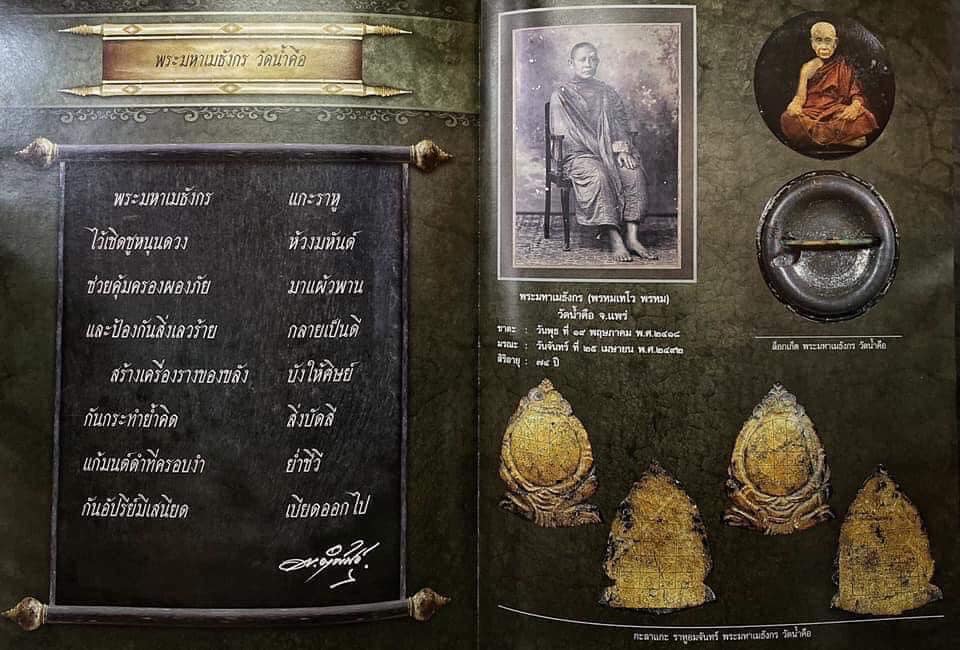 พระมหาเมธังกร วัดน้ำคือ
พระมหาเมธังกร แกะราหู
ไว้เชิดชูหนุนดวง ห้วงมหันต์
ช่วยคุ้มครองผองภัย มาแผ้วพาน
และป้องกันสิ่งเลวร้าย กลายเป็นดี
สร้างเครื่องรางของขลัง บังให้ศิษย์
กันกระทำย้ำคิด สิ่งบัดสี
แก้มนต์ดำที่ครอบงำ ย่ำชีวี
กันอัปรีย์มีเสนียด เบียดออกไป
พระมหาเมธังกร (พรหมเทโว พรหม)
วัดน้ำคือ จ.แพร่
ชาตะ : วันพุธ ที่ ๑๙ พฤษภาคม พ.ศ.๒๔๑๘
มรณะ : วันจันทร์ ที่ ๒๕ เมษายน พ.ศ.๒๔๙๒
สิริอายุ : ๗๔ ปี
ล็อกเก็ต พระมหาเมธังกร วัดน้ำคือ
กะลาแกะ ราหูอมจันทร์ พระมหาเมธังกร วัดน้ำคือ